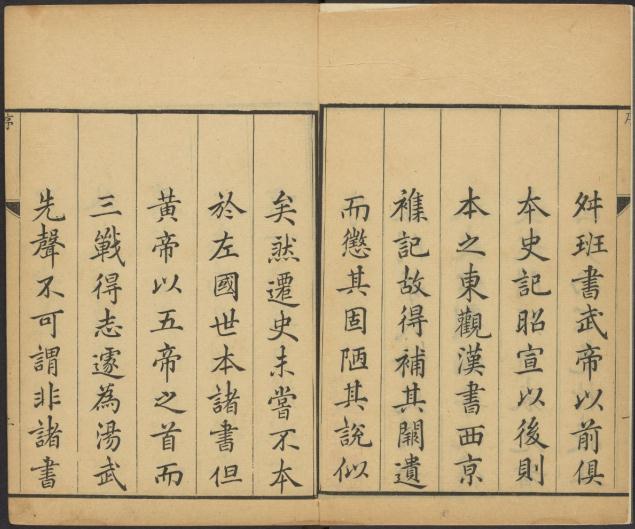 舛班書武帝以前俱
本史記昭宣以後則
本之東觀漢書西京
襍記故得補其闕遺
而懲其固陋其說似
矣然遷史未嘗不本
於左國世本諸書但
黃帝以五帝之首而
三戰得志遂為湯武
先聲不可謂非諸書
序